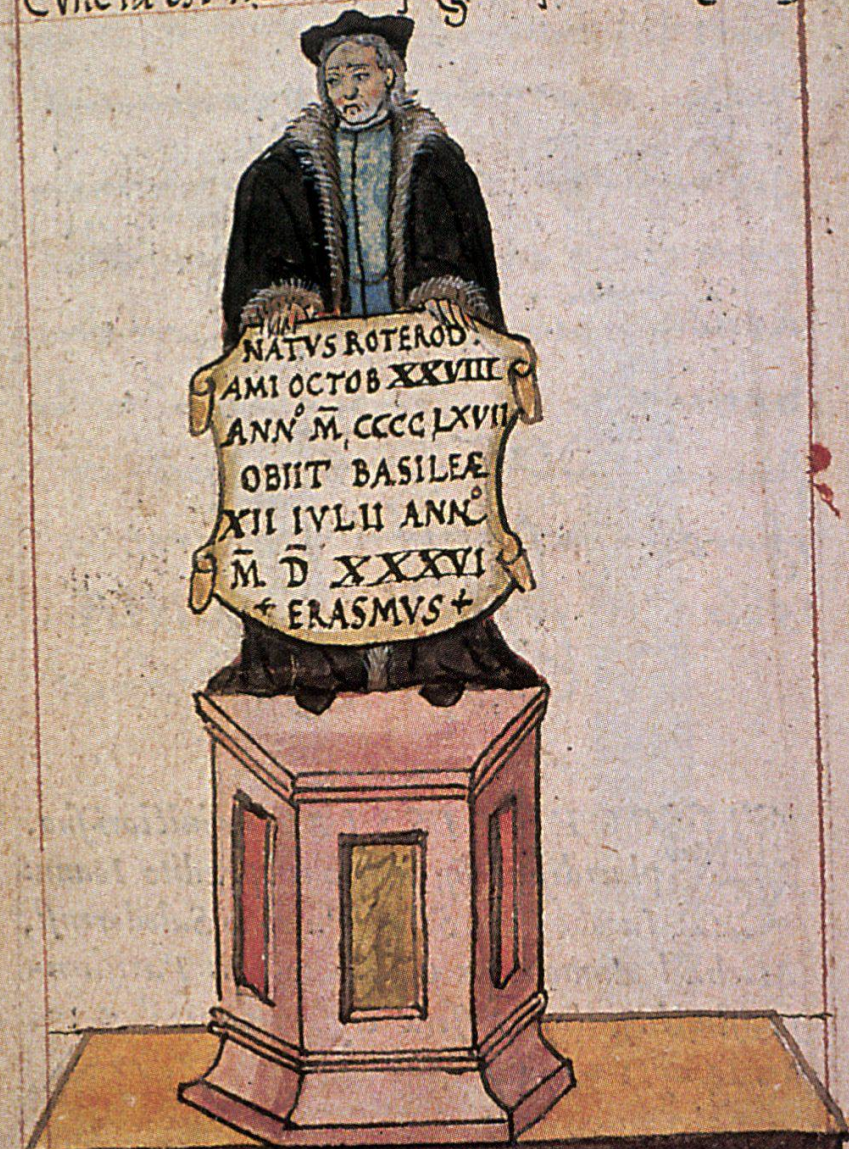 NATVS ROTEROD.
AMI OCTOB XXVIII
ANN° M̄ CCCC LXVII
OBIIT BASILEÆ
XII IVLII ANN°
M̄ D̄ XXXVI
+ ERASMVS +